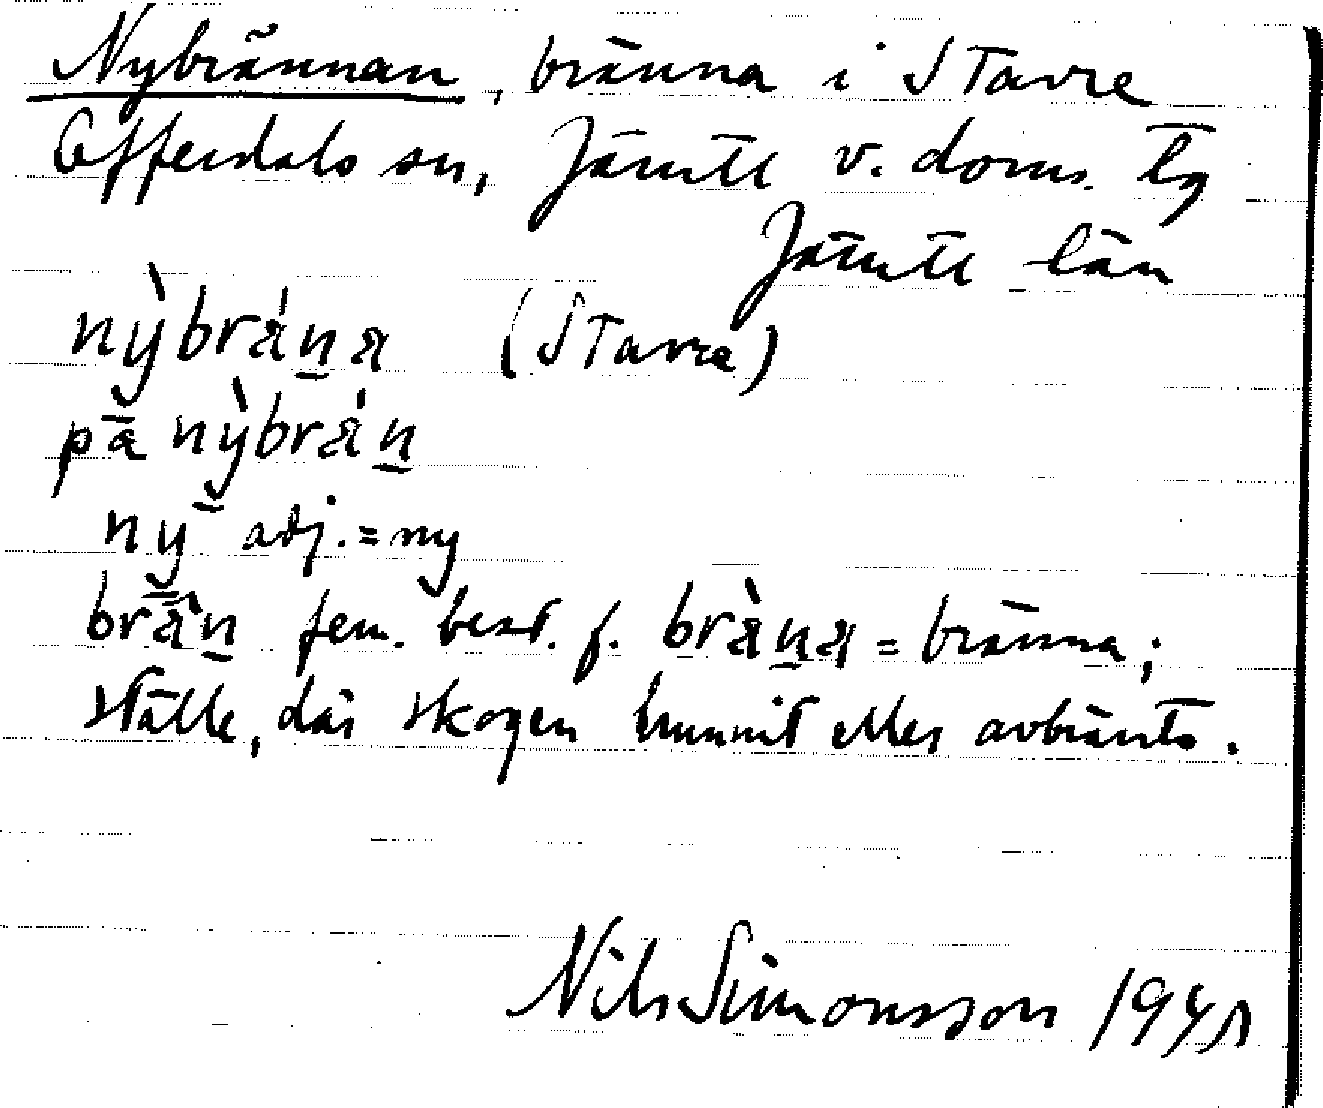 Nybrännan, bränna i Stavre
Offerdals sn, Jämtl v. doms. lg
Jämtl län
nỳbrá̈n̲a (Stavre)
pā nỳbrá̈n̲
nȳ adj. = ny
brä̂n̲ fem. best. f. brä̀n̲a = bränna;
ställe, där skogen brunnit eller avbränts.
Nils Simonsson